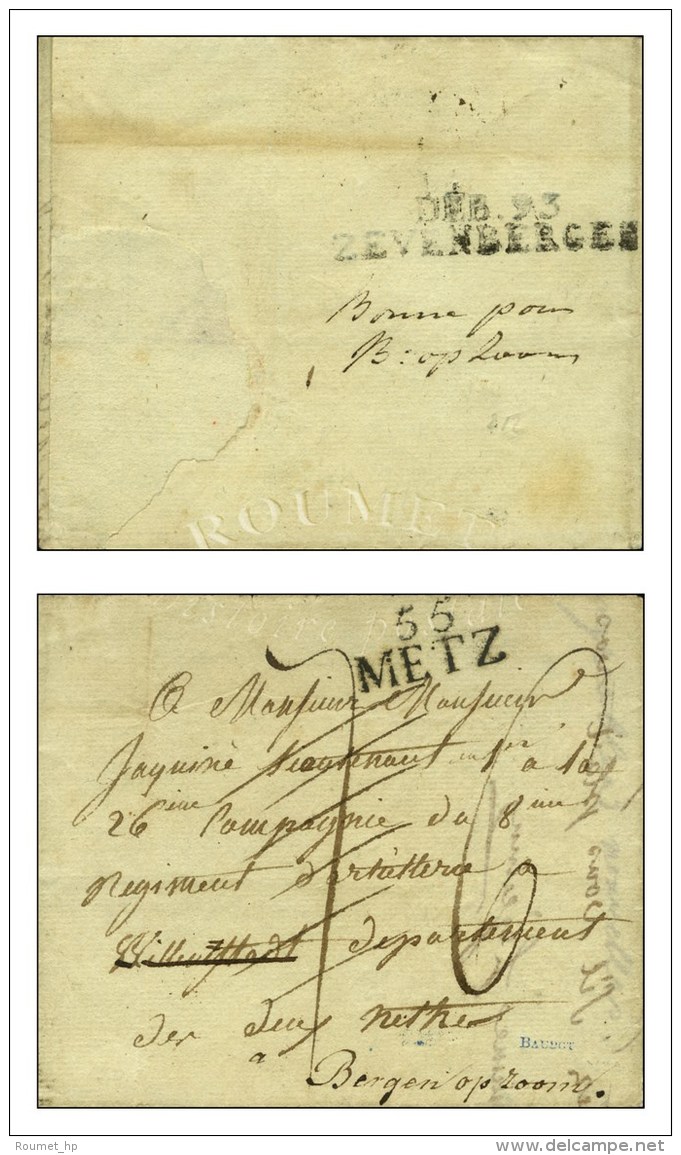 DEB. 93
ZEVENBERGEN
Bonne pour
B: op Zoom
ROUMET
55
METZ
A Monsieur Monsieur
Jaquiné Lieutenant en 1er a la
26ieme Compagnie du 8ieme
Regiment d'artillerie a
Willemstadt departement
des deux nethes
a
Bergen op zoom.
BAUDOT
Roumet_hp
www.delcampe.net